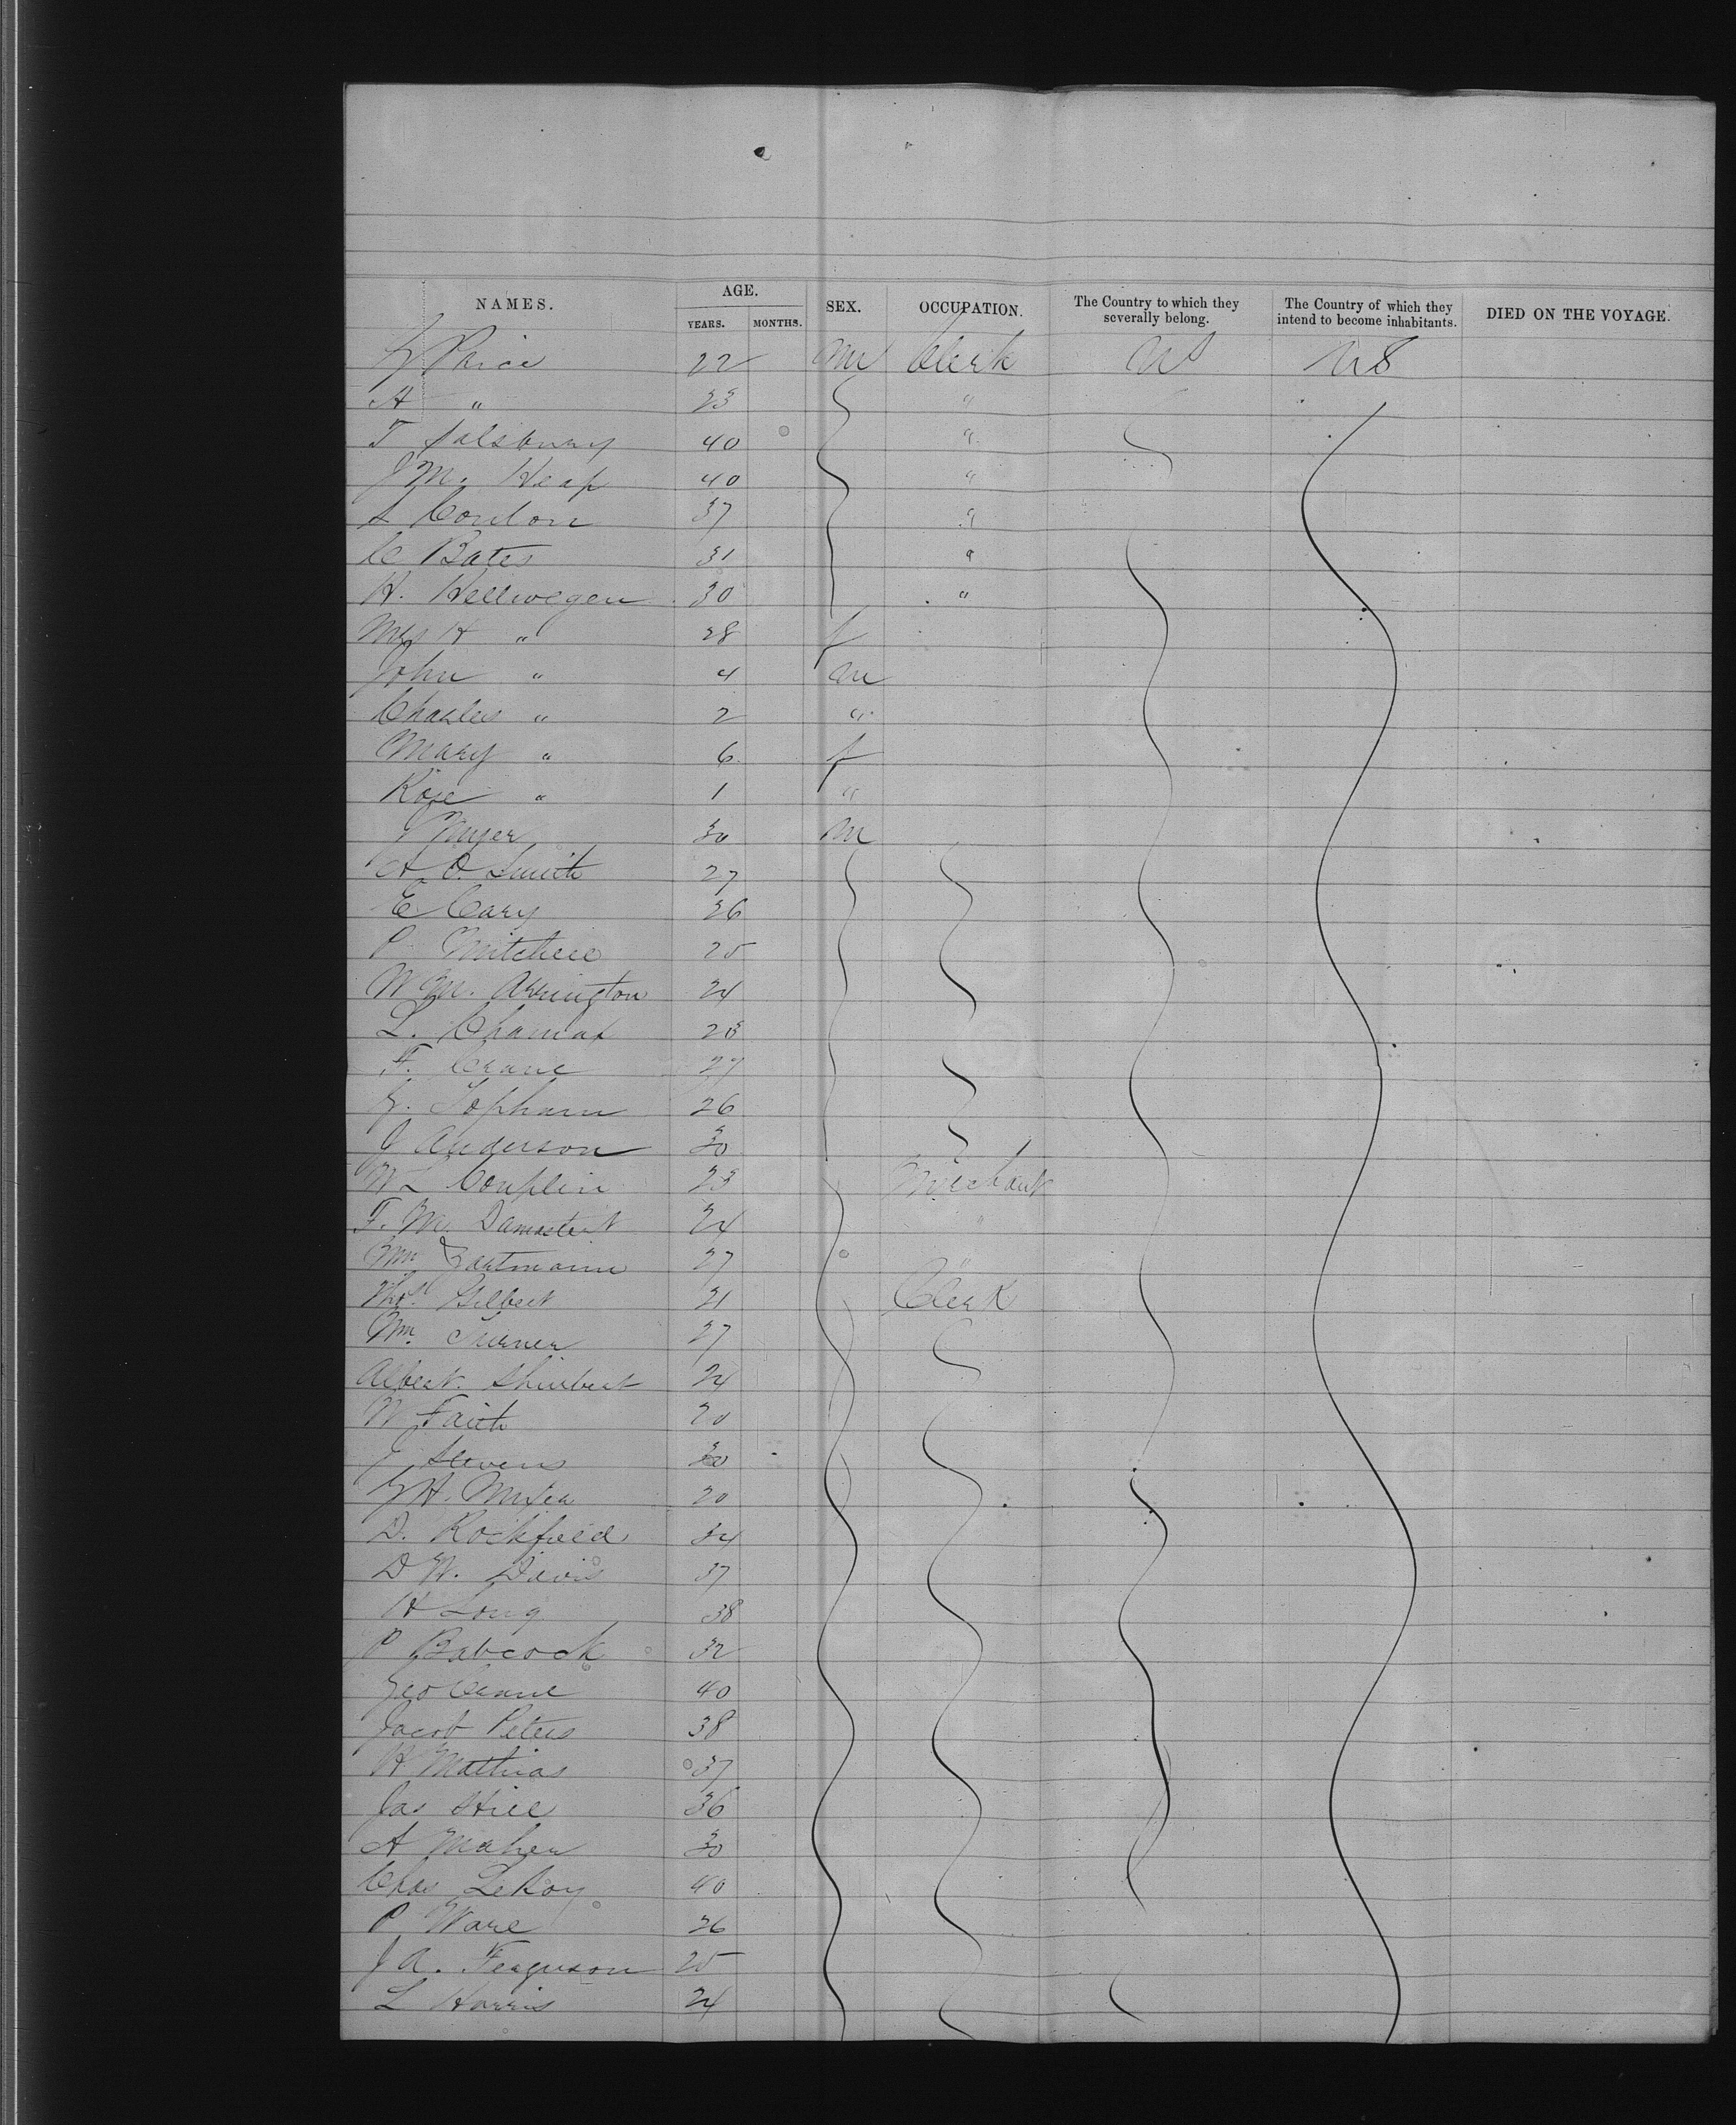 NAMES. AGE. YEARS. MONTHS. SEX. OCCUPATION. The Country to which they severally belong. The Country of which they intend to become inhabitants. DIED ON THE VOYAGE.
G Price 22 m Clerk US US
A " 23 "
T Salsbury 40 "
J M. Heap 40 "
S Condon 37 "
C Bates 31 "
H. Hellwegen 30 "
Mrs H " 28 f
John " 4 m
Charles " 2 "
Mary " 6 f
Rose " 1 "
J Meyer 30 m
A O. Smith 27
E Cary 26
P Mitchell 25
W M. Arrington 24
L. 23
F. Crane 27
G. Topham 26
J Anderson 30
W L Conplin 23 Merchant
F. M. 24 "
Wm 27 "
Thos. Gilbert 21 Clerk
Wm. 27
Albert. 24
W Faith 20
J Stevens 30
G H. 20
D. Rockfield 34
D W. Davis 37
H Long 38
P Babcock 32
Geo Crane 40
Jacob Peters 38
H Mathias 37
Jas Hill 36
A Maher 30
Chas LeRoy 40
P Ware 26
J A. Ferguson 25
L Harris 24